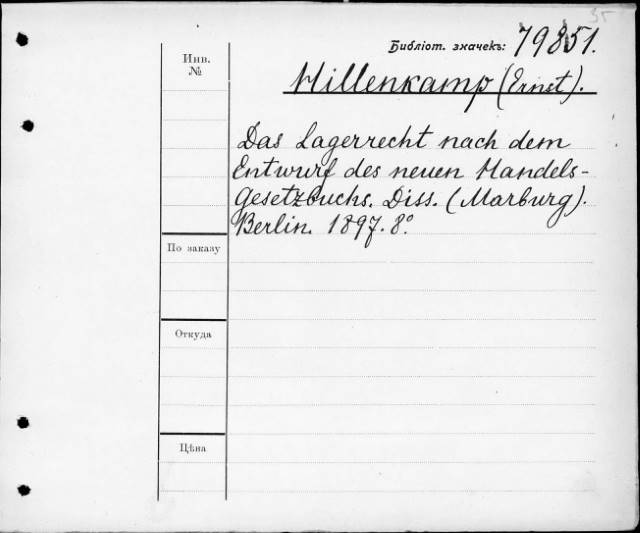 35
Библіот. значекъ: 79851.
Инв.
№
Hillenkamp (Ernst).
Das Lagerrecht nach dem
Entwurf des neuen Handels-
Gesetzbuchs. Diss. (Marburg).
Berlin. 1897. 8º
По заказу
Откуда
Цѣна